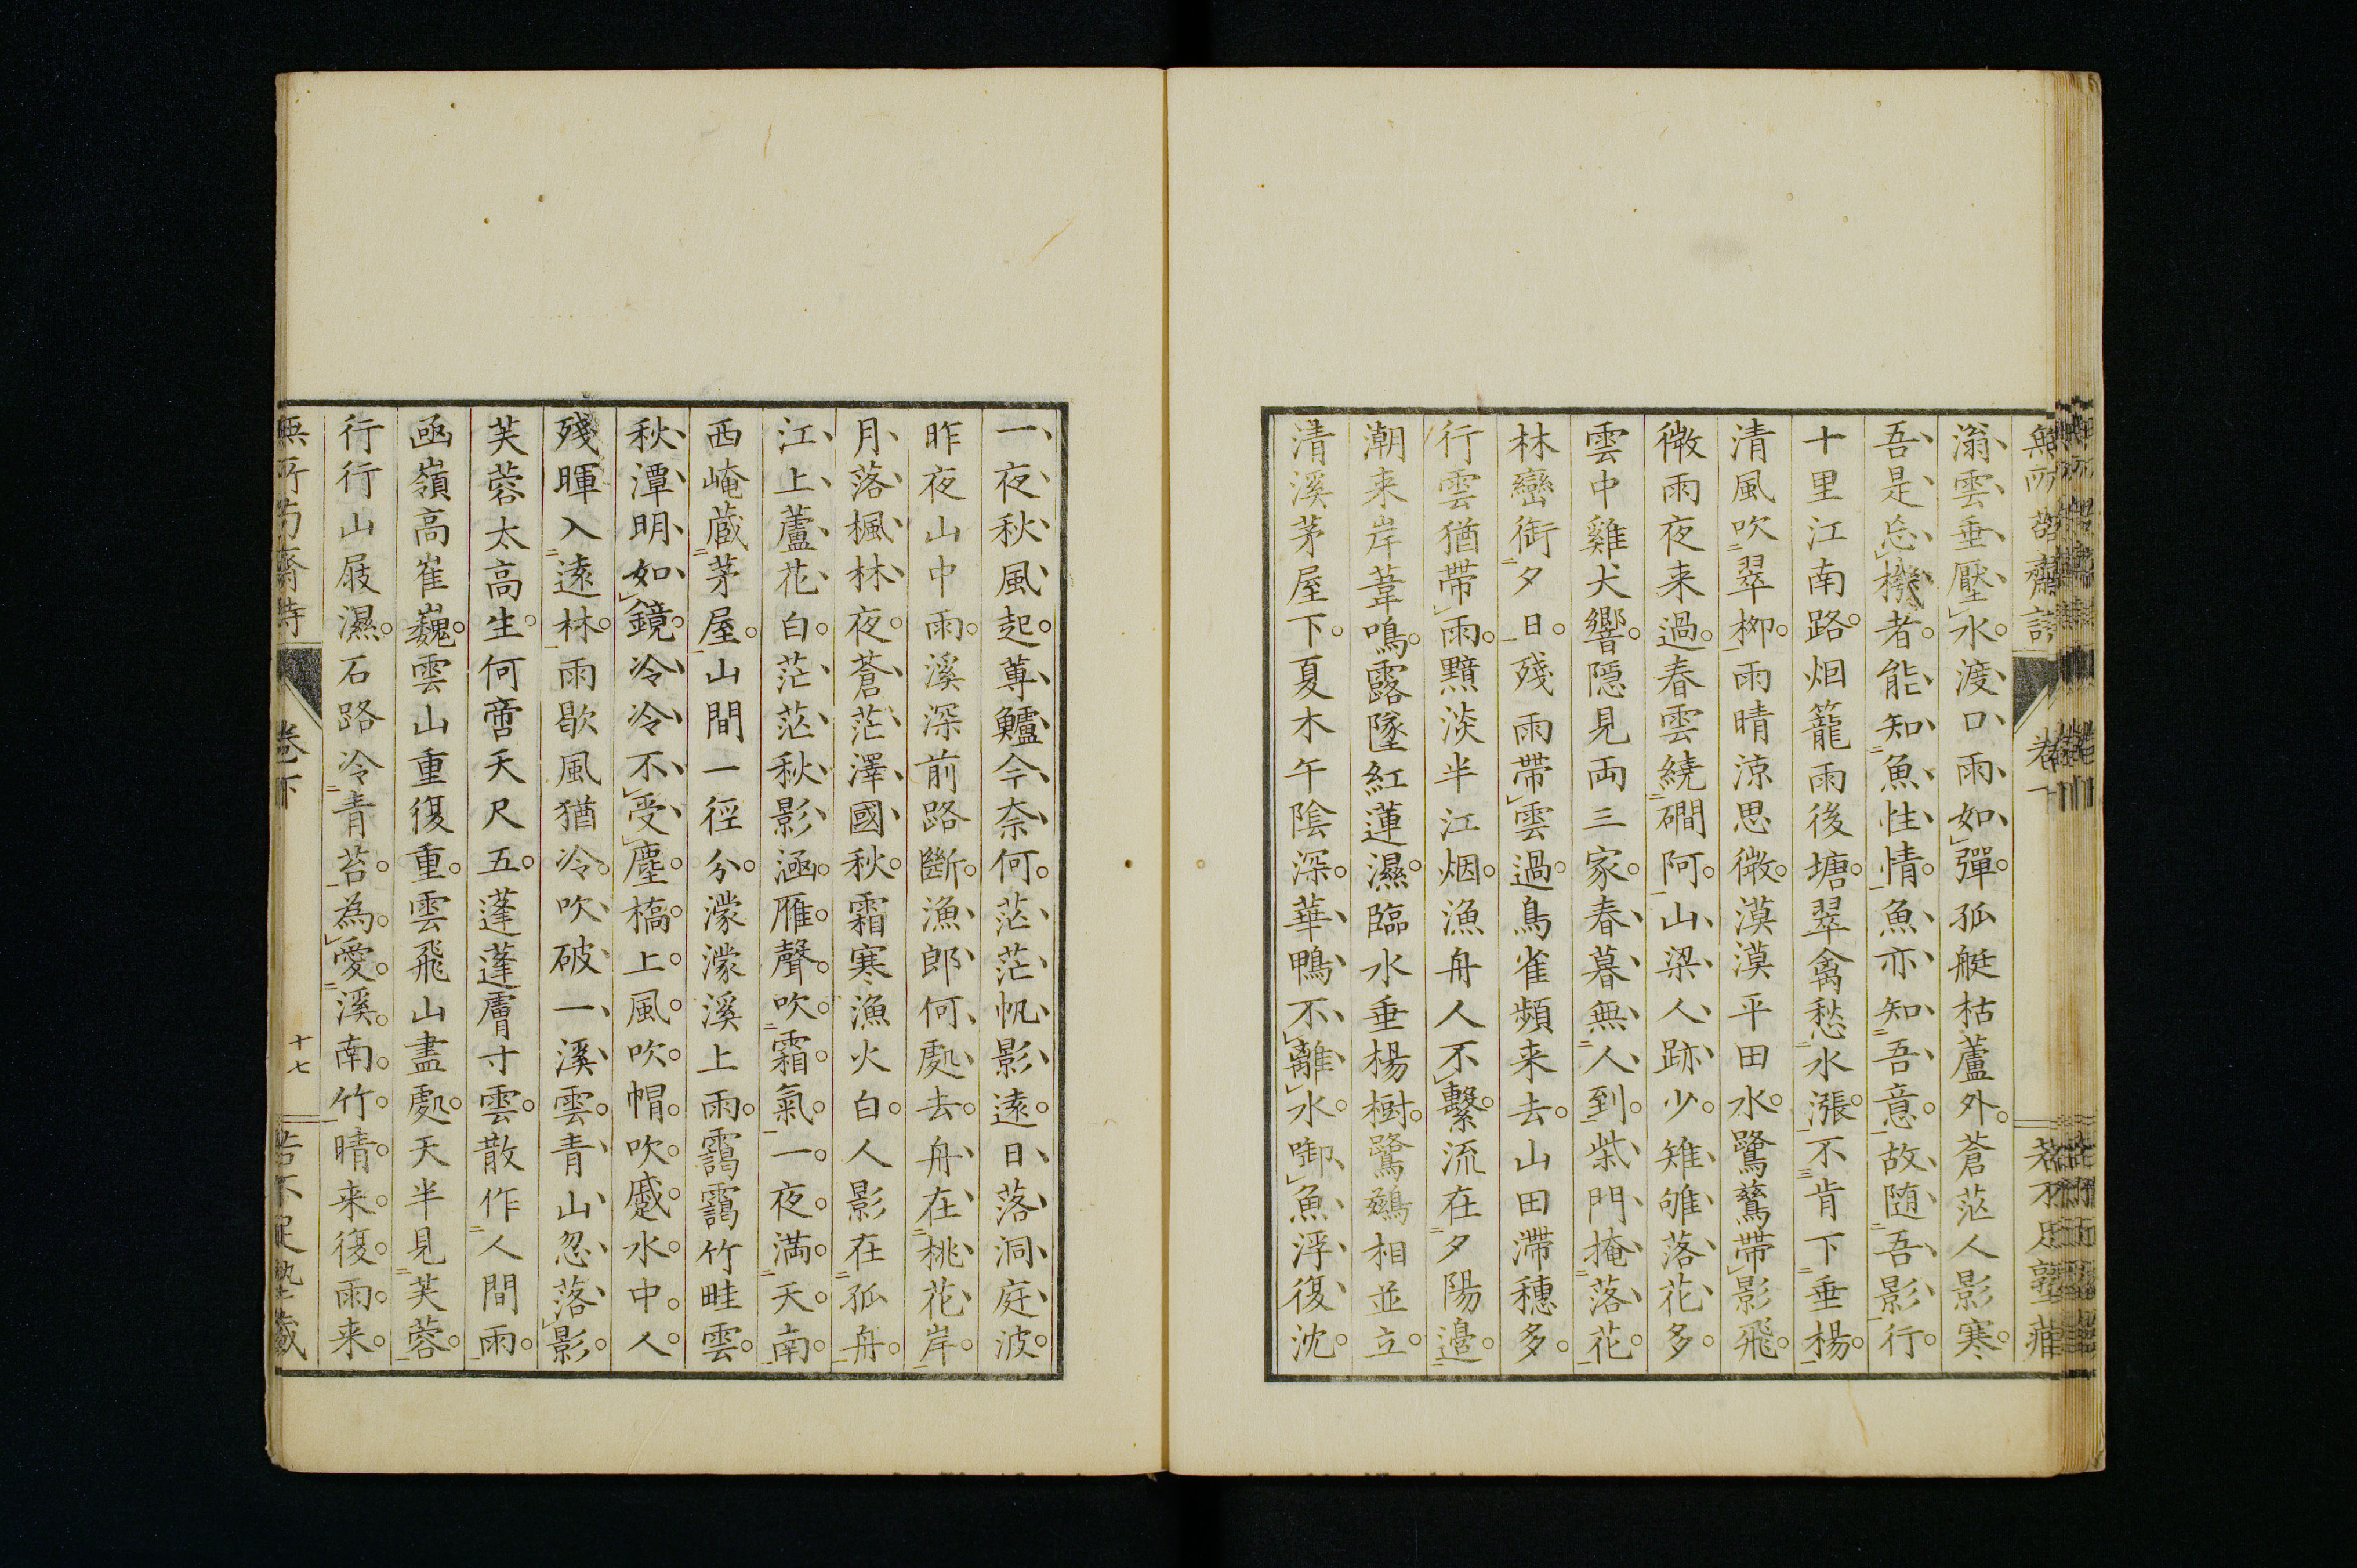 滃雲垂壓水渡口雨如彈孤艇枯蘆外蒼茫人影寒
吾是忘機者能知魚性情魚亦知吾意故随吾影行
十里江南路烟籠雨後塘翠禽愁水漲不肯下垂楊
清風吹翠柳雨晴涼思微漠漠平田水鷺鷥帶影飛
微雨夜来過春雲繞磵阿山梁人跡少雉雊落花多
雲中雞犬響隠見両三家春暮無人到柴門掩落花
林巒銜夕日殘雨帶雲過鳥雀頻来去山田滯穗多
行雲猶帶雨黯淡半江烟漁舟人不繫流在夕陽邉
潮来岸葦鳴露墜紅蓮濕臨水垂楊樹鷺鷀相並立
清溪茅屋下夏木午陰深華鴨不離水啣魚浮復沈
一夜秋風起蓴鱸今奈何茫茫帆影遠日落洞庭波
昨夜山中雨溪深前路斷漁郎何處去舟在桃花岸
月落楓林夜蒼茫澤國秋霜寒漁火白人影在孤舟
江上蘆花白茫茫秋影涵雁聲吹霜氣一夜満天南
西崦蔵茅屋山間一徑分濛濛溪上雨靄靄竹畦雲
秋潭明如鏡冷冷不受塵橋上風吹帽吹蹙水中人
殘暉入遠林雨歇風猶冷吹破一溪雲青山忽落影
芙蓉太高生何啻天尺五蓬蓬膚寸雲散作人間雨
凾嶺高崔巍雲山重復重雲飛山盡處天半見芙蓉
行行山屐濕石路冷青苔為愛溪南竹晴来復雨来
卷下
十七